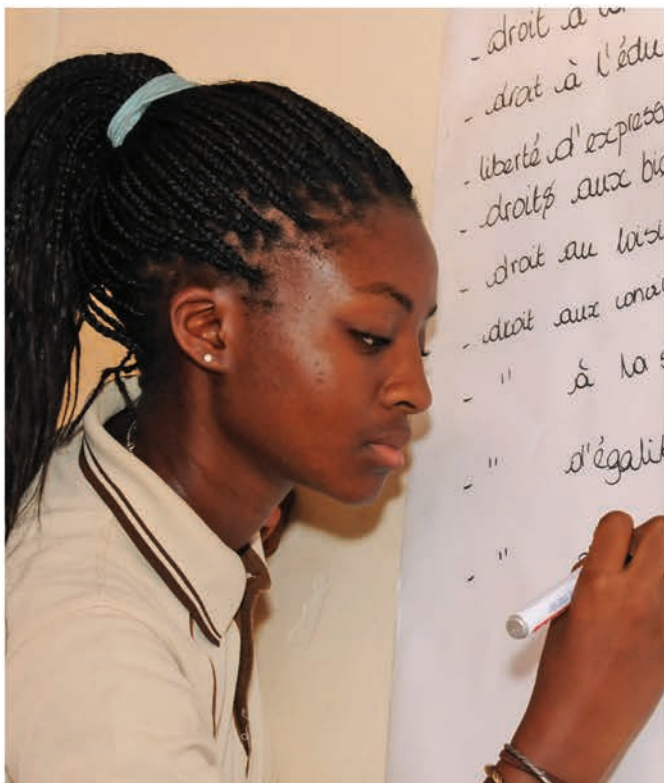 - droit à
- droit à l'édu
- liberté d'express
- droits aux bie
- droit au loisi
- droit aux
- " à la s
- " d'égalit
- "